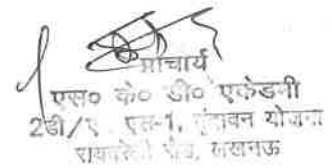 प्राचार्य
एस० के० डी० एकेडमी
2डी/ए, एस-1, वृंदावन योजना
रायबरेली रोड, लखनऊ